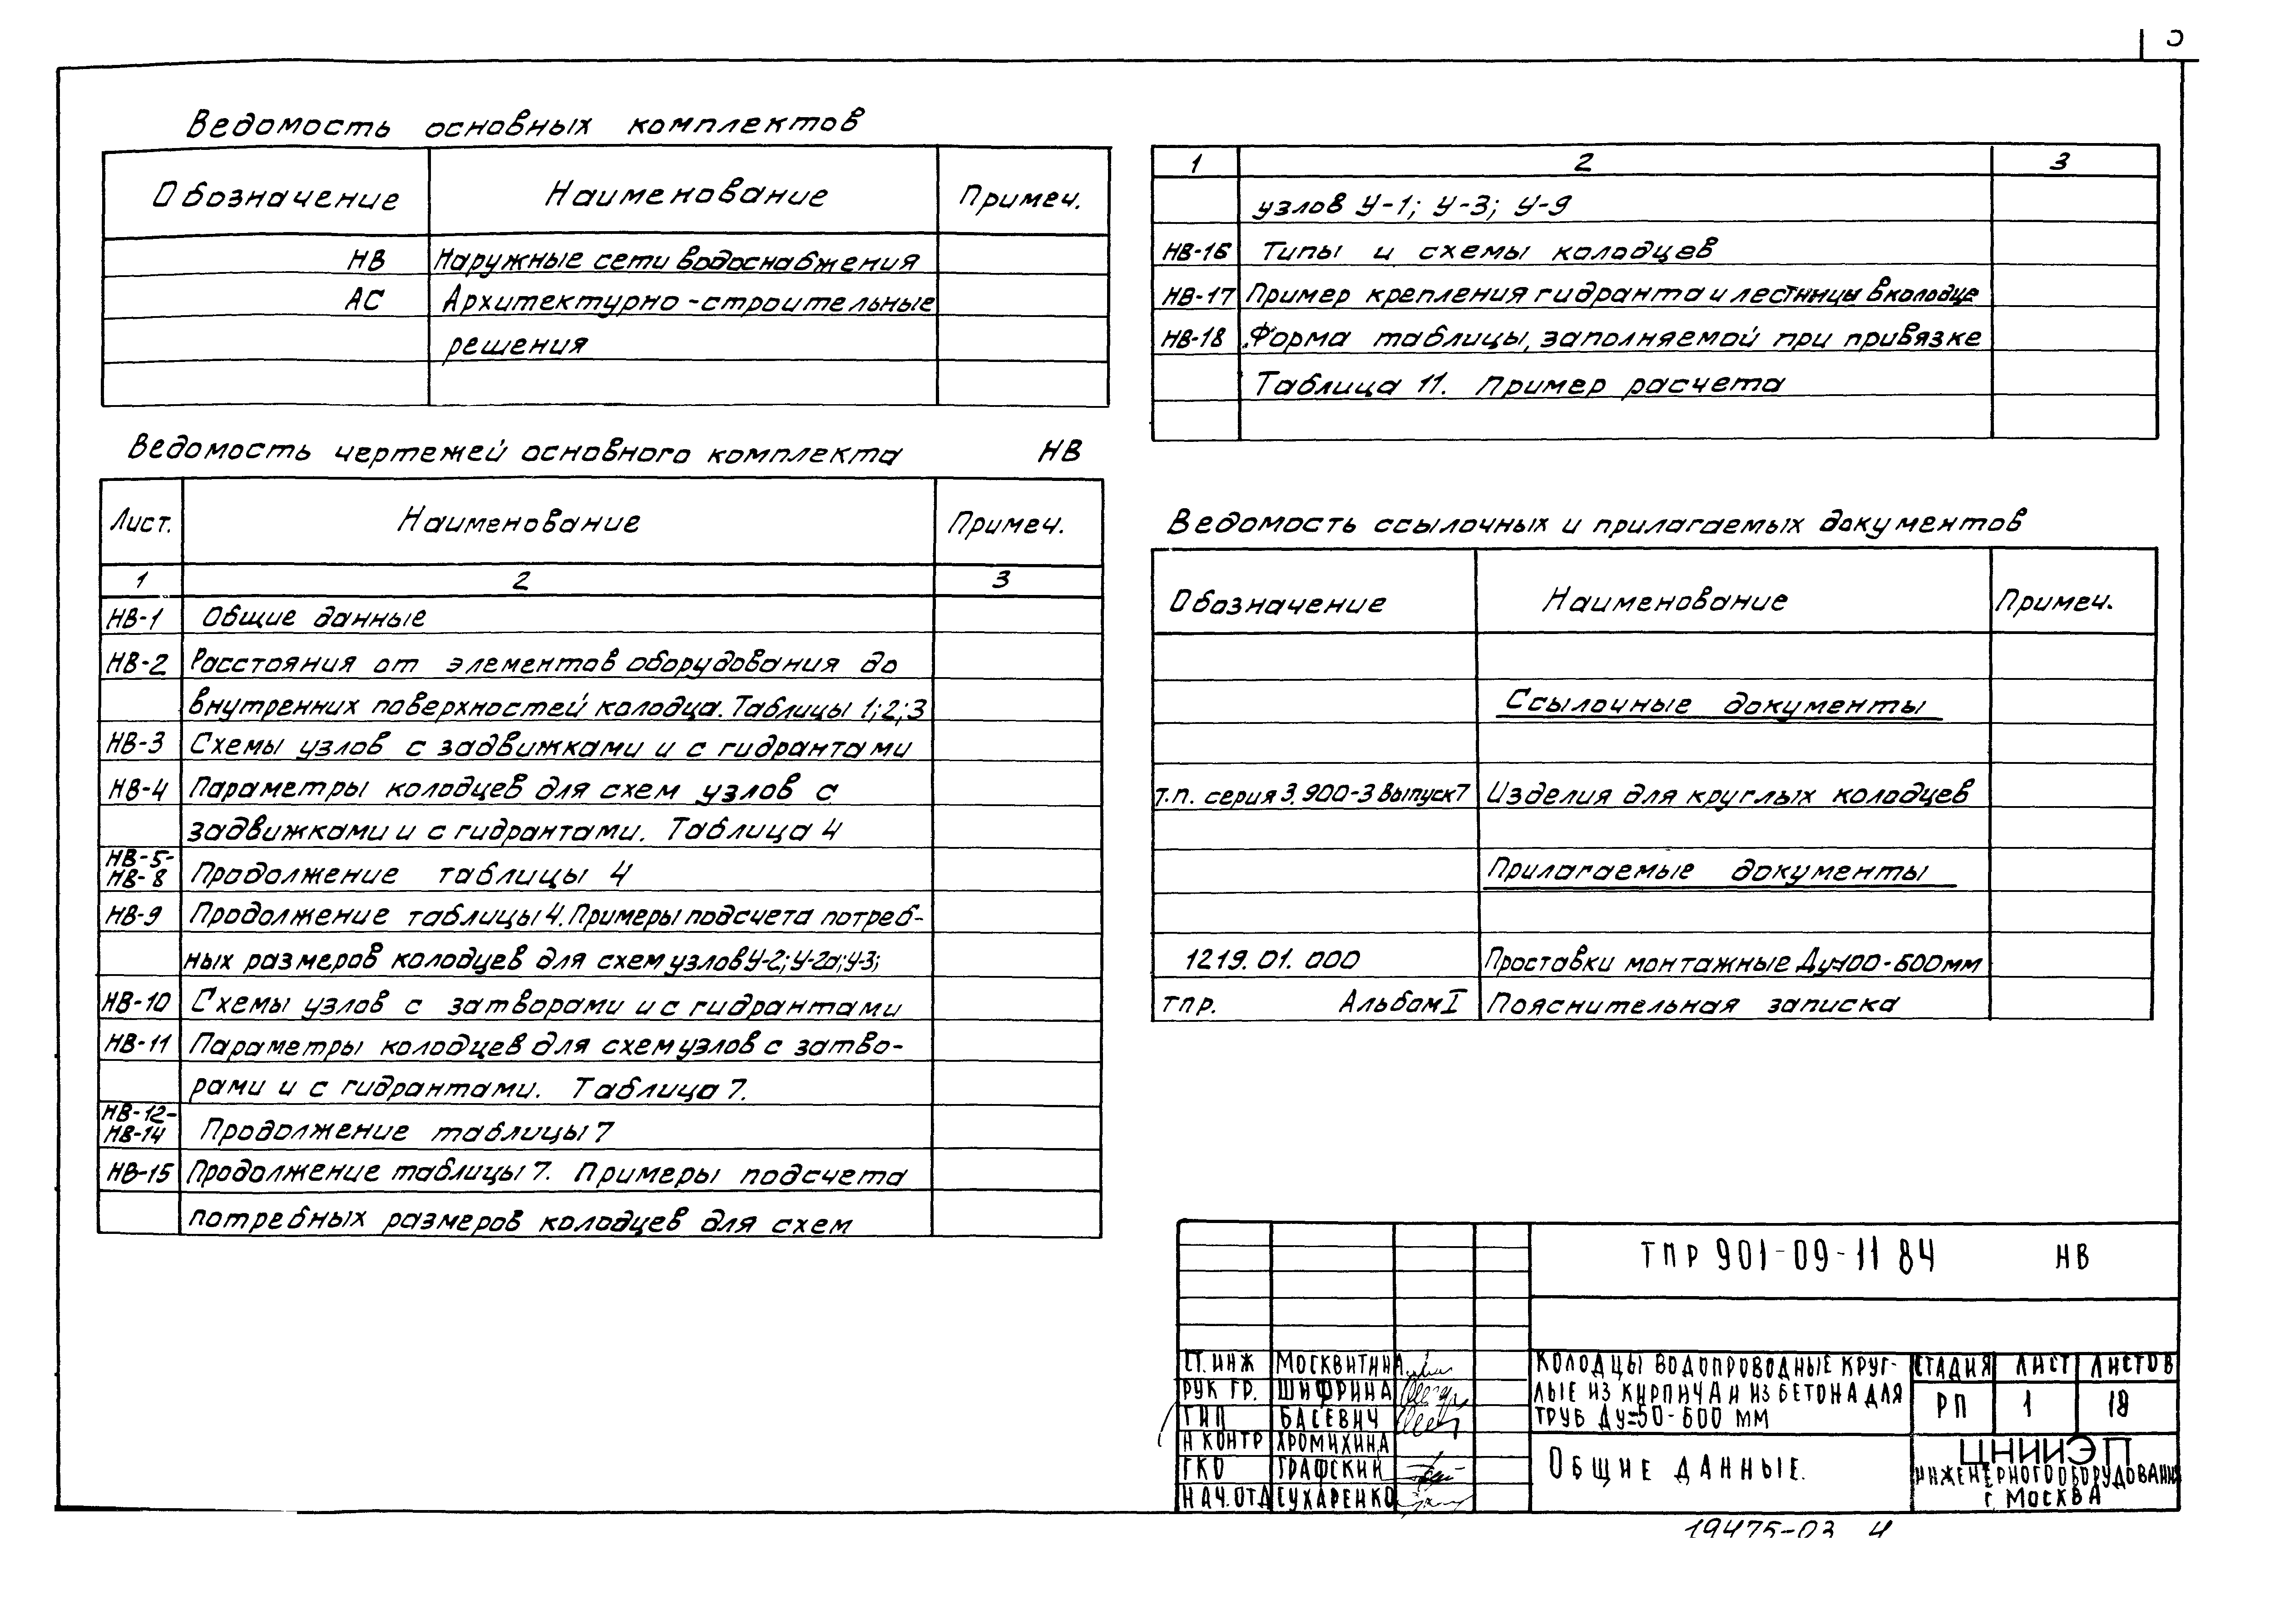 Ведомость основных комплектов
Обозначение Наименование Примеч.
НВ Наружные сети водоснабжения
АС Архитектурно-строительные
решения
Ведомость чертежей основного комплекта НВ
Лист. Наименование Примеч.
1 2 3
НВ-1 Общие данные
НВ-2 Расстояния от элементов оборудования до
внутренних поверхностей колодца. Таблицы 1; 2; 3
НВ-3 Схемы узлов с задвижками и с гидрантами
НВ-4 Параметры колодцев для схем узлов с
задвижками и с гидрантами. Таблица 4
НВ-5-
НВ-8 Продолжение таблицы 4
НВ-9 Продолжение таблицы 4. Примеры подсчета потреб-
ных размеров колодцев для схем узлов У-2; У-2а; У-3;
НВ-10 Схемы узлов с затворами и с гидрантами
НВ-11 Параметры колодцев для схем узлов с затво-
рами и с гидрантами. Таблица 7.
НВ-12-
НВ-14 Продолжение таблицы 7
НВ-15 Продолжение таблицы 7. Примеры подсчета
потребных размеров колодцев для схем
1 2 3
узлов У-1; У-3; У-9
НВ-16 Типы и схемы колодцев
НВ-17 Пример крепления гидранта и лестницы в колодце
НВ-18 Форма таблицы, заполняемой при привязке
Таблица 11. Пример расчета
Ведомость ссылочных и прилагаемых документов
Обозначение Наименование Примеч.
Ссылочные документы
т.п. серия 3.900-3 Выпуск 7 Изделия для круглых колодцев
Прилагаемые документы
1219.01.000 Проставки монтажные Ду=100-600мм
тпр. Альбом I Пояснительная записка
ТПР 901-09-11 84 НВ
СТ. ИНЖ МОСКВИТИНА
РУК ГР. ШИФРИНА
ГИП БАСЕВИЧ
Н КОНТР ХРОМИХИНА
ГКО ГРАФСКИЙ
НАЧ.ОТД СУХАРЕНКО
КОЛОДЦЫ ВОДОПРОВОДНЫЕ КРУГ-
ЛЫЕ ИЗ КИРПИЧА И ИЗ БЕТОНА ДЛЯ
ТРУБ Ду=50-600 ММ
СТАДИЯ ЛИСТ ЛИСТОВ
РП 1 18
ОБЩИЕ ДАННЫЕ.
ЦНИИЭП
ИНЖЕНЕРНОГО ОБОРУДОВАНИЯ
Г. МОСКВА
19475-03 4